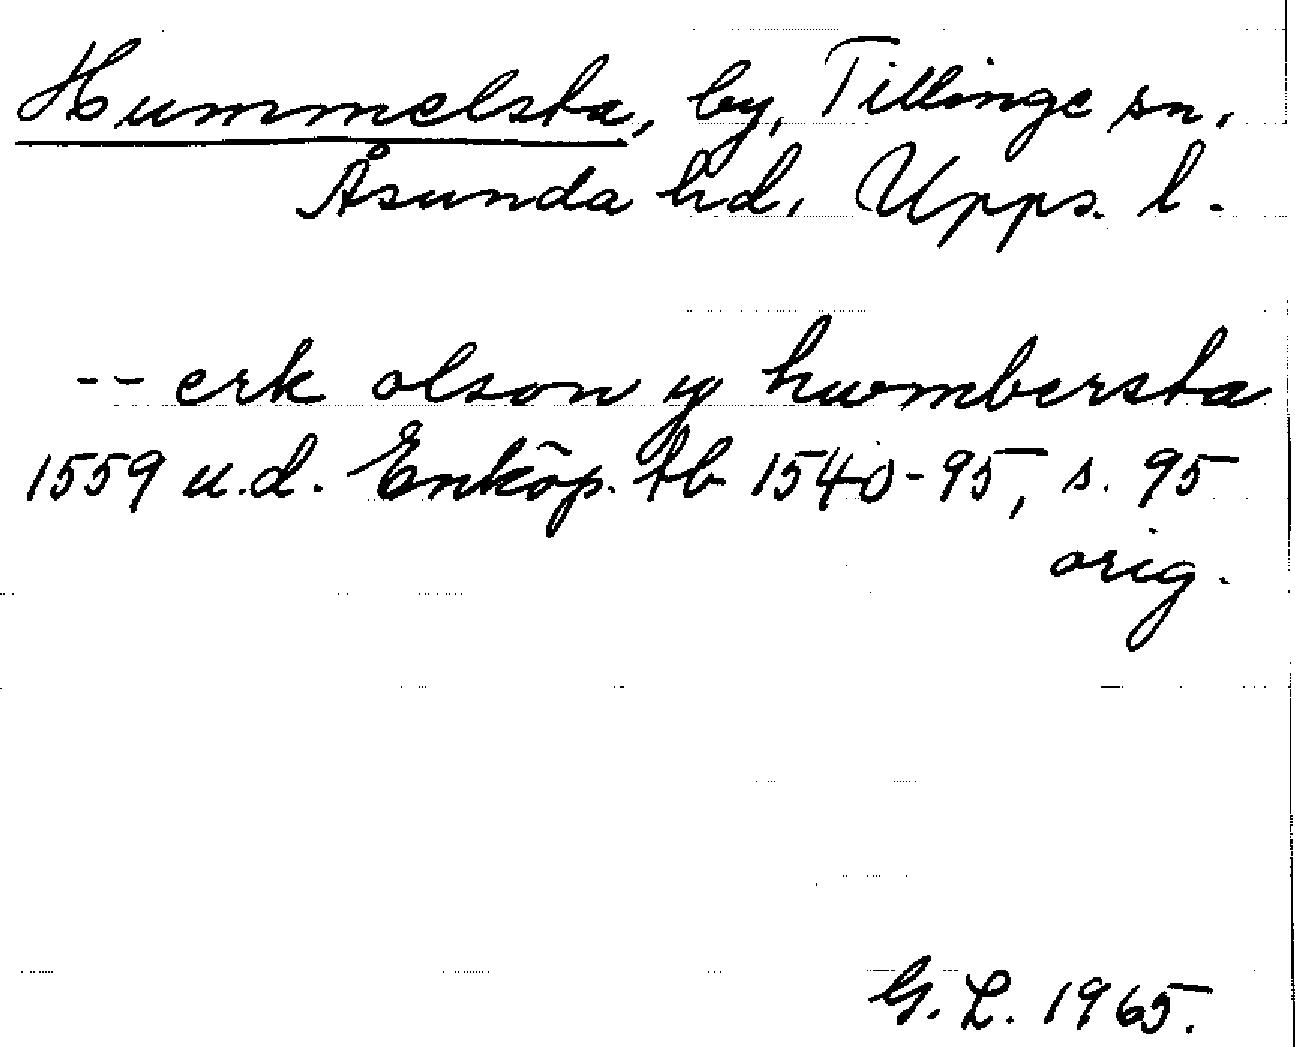 Hummelsta, by, Tillinge sn.
Åsunda hd, Upps. l.
-- erk olson y humbersta
1559 u.d. Enköp. tb 1540-95, s. 95
orig.
G. L. 1965.